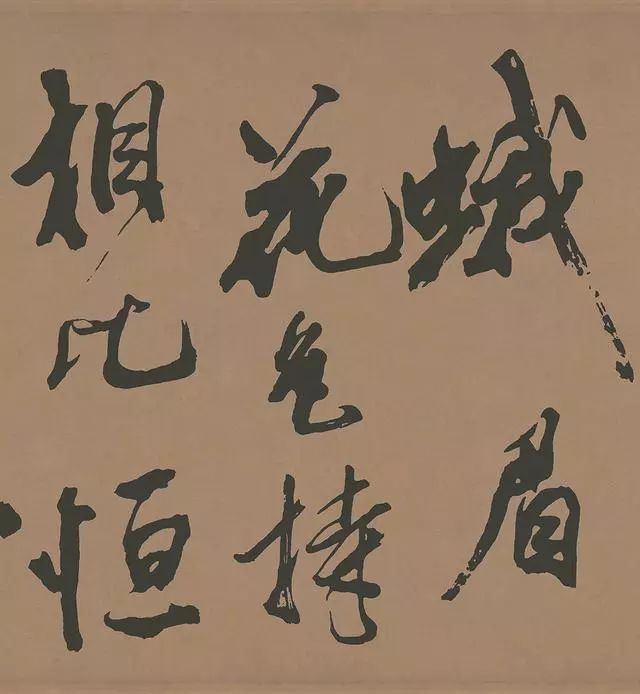 蛾眉
花色捧
相比恒